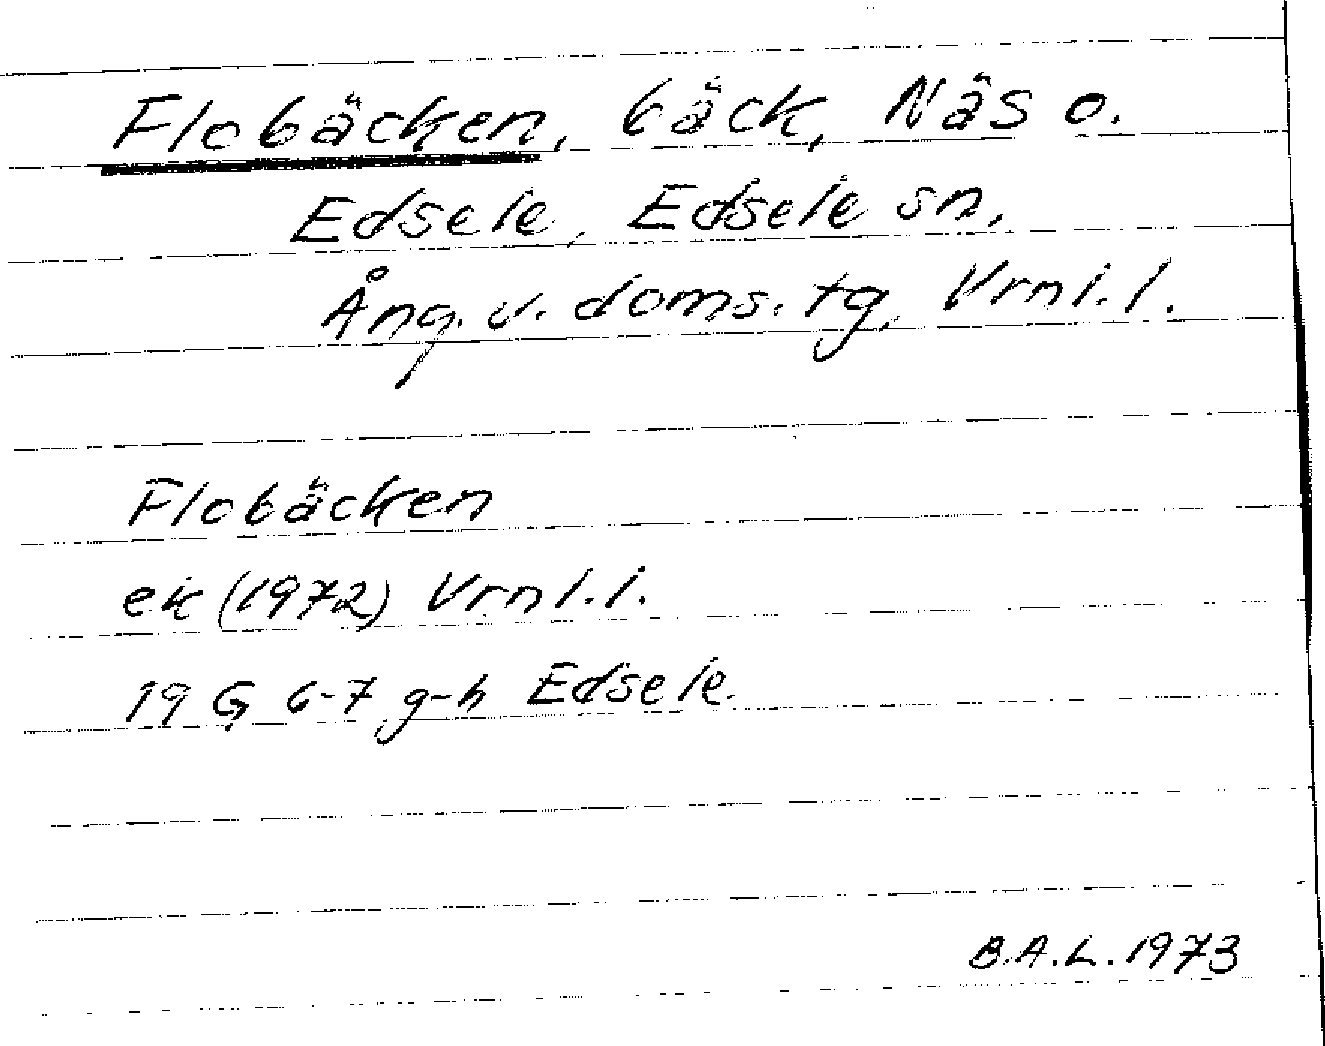 Flobäcken, bäck, Näs o.
Edsele, Edsele sn,
Ång. v. doms. tg, Vrnl. l.
Flobäcken
ek (1972) Vrnl. l.
19 G 6-7 g-h Edsele.
B.A.L. 1973